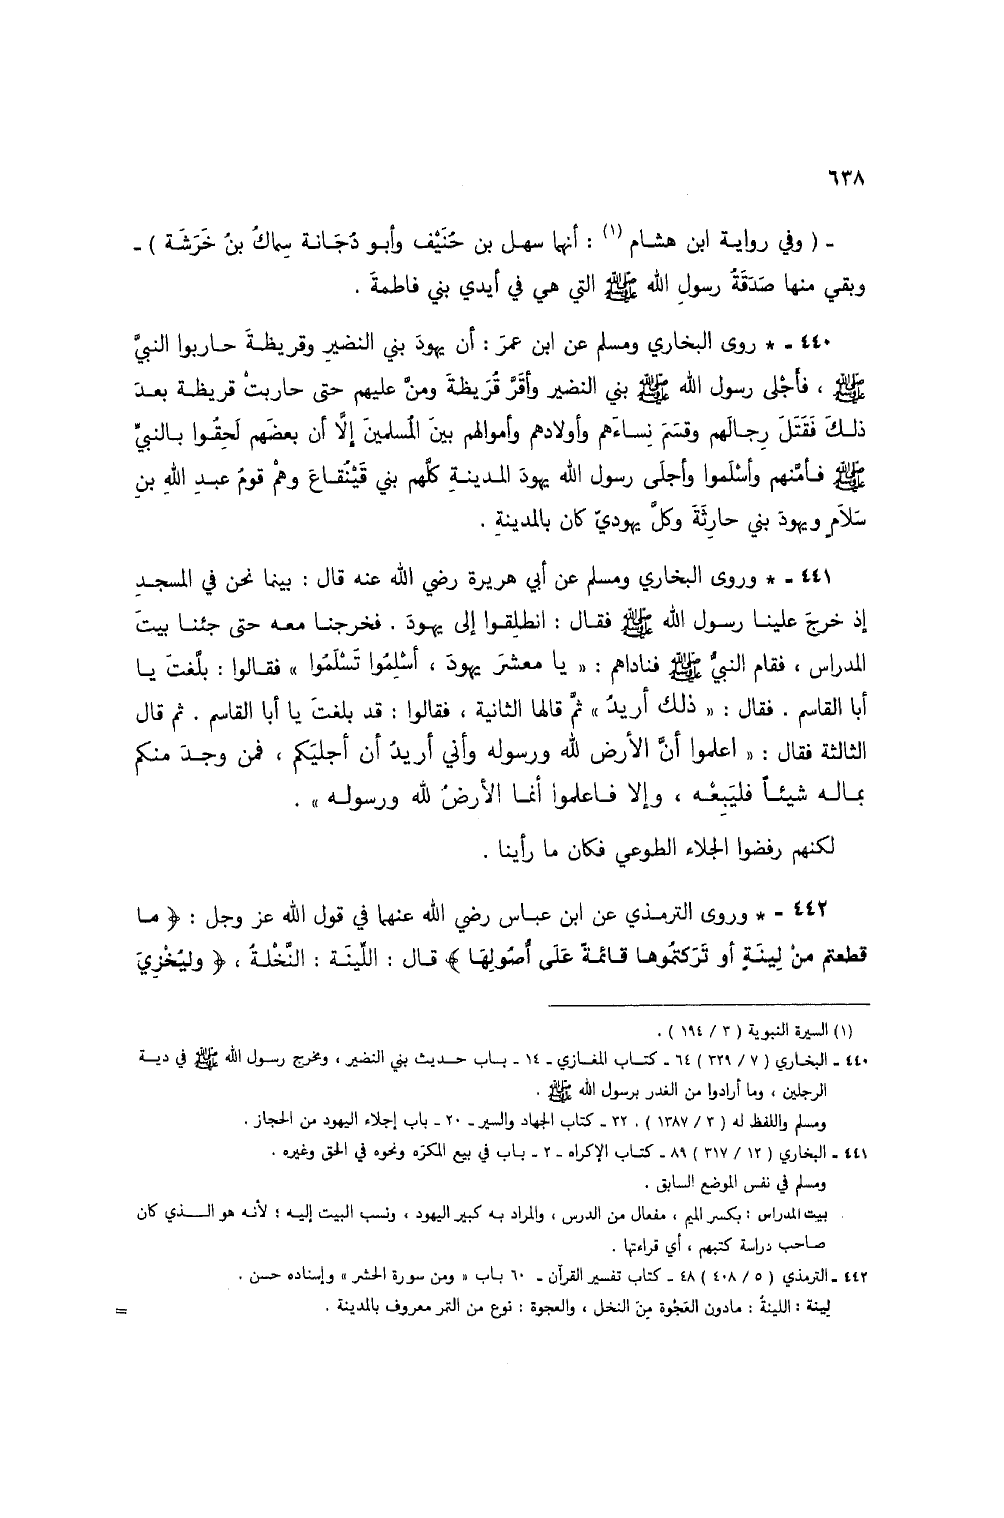 ٦٣٨
ـ ( وفي رواية ابن هشام (١) : أنها سهل بن حُنَيْف وأبو دُجَانة سِماكُ بنُ خَرَشَة ) ـ
وبقي منها صَدَقَةُ رسولِ الله ﷺ التي هي في أيدي بني فاطمةَ .
٤٤٠ ـ * روى البخاري ومسلم عن ابن عمرَ : أن يهودَ بني النضيرِ وقريظةَ حاربوا النبيَّ
ﷺ ، فأَجْلى رسول الله ﷺ بني النضير وأقَرَّ قُرَيظةَ ومنَّ عليهم حتى حاربتْ قريظة بعدَ
ذلكَ فَقَتَلَ رِجالَهم وقسَمَ نِساءَهم وأولادهم وأموالهم بينَ المُسلمينَ إلَّا أن بعضَهم لَحِقُوا بالنبيِّ
ﷺ فأمَّنهم وأَسْلَموا وأجلَى رسول الله يهودَ المدينةِ كلَّهم بني قَيْنُقاعَ وهمْ قومُ عبدِ اللهِ بنِ
سَلاَمٍ ويهودَ بني حارِثَةَ وكلَّ يهوديّ كان بالمدينةِ .
٤٤١ ـ * وروى البخاري ومسلم عن أبي هريرة رضي الله عنه قال : بينما نحن في المسجدِ
إذ خرجَ علينا رسول الله ﷺ فقال : انطلِقوا إلى يهودَ . فخرجنا معه حتى جئنا بيتَ
المدراس ، فقام النبيُّ ﷺ فناداهم : « يا معشرَ يهودَ ، أَسْلِمُوا تَسْلَمُوا » فقالوا : بلَّغتَ يا
أبا القاسم . فقال : « ذلك أريدُ » ثمَّ قالها الثانية ، فقالوا : قد بلغتَ يا أبا القاسم . ثم قال
الثالثة فقال : « اعلموا أنَّ الأرض لله ورسوله وأني أريدُ أن أجليَكم ، فمن وجدَ منكم
بماله شيئاً فليَبِعْه ، وإلا فاعلموا أنما الأرضُ لله ورسوله » .
لكنهم رفضوا الجلاء الطوعي فكان ما رأينا .
٤٤٢ ـ * وروى الترمذي عن ابن عباس رضي الله عنهما في قول الله عز وجل : ﴿ ما
قطعتم منْ لِينَةٍ أو تَرَكتُموها قائمةً عَلَى أُصُولِهَا ﴾ قال : اللِّينَة : النَّخْلةُ ، ﴿ وليُخْزِيَ
(١) السيرة النبوية ( ٣ / ١٩٤ ) .
٤٤٠ ـ البخاري ( ٧ / ٣٢٩ ) ٦٤ ـ كتاب المغازي ـ ١٤ ـ باب حديث بني النضير ، ومخرج رسول الله ﷺ في دية
الرجلين ، وما أرادوا من الغدر برسول الله ﷺ .
ومسلم واللفظ له ( ٣ / ١٣٨٧ ) . ٣٢ ـ كتاب الجهاد والسير ـ ٢٠ ـ باب إجلاء اليهود من الحجاز .
٤٤١ ـ البخاري ( ١٢ / ٣١٧ ) ٨٩ ـ كتاب الإكراه ـ ٢ ـ باب في بيع المكرَه ونحوه في الحق وغيره .
ومسلم في نفس الموضع السابق .
بيت المدراس : بكسر الميم ، مفعال من الدرس ، والمراد به كبير اليهود ، ونسب البيت إليه ؛ لأنه هو الذي كان
صاحب دراسة كتبهم ، أي قراءتها .
٤٤٢ ـ الترمذي ( ٥ / ٤٠٨ ) ٤٨ ـ كتاب تفسير القرآن ـ ٦٠ باب « ومن سورة الحشر » وإسناده حسن .
لينة : اللينةُ : مادون العَجْوة مِنَ النخل ، والعجوة : نوع من التمر معروف بالمدينة .
=